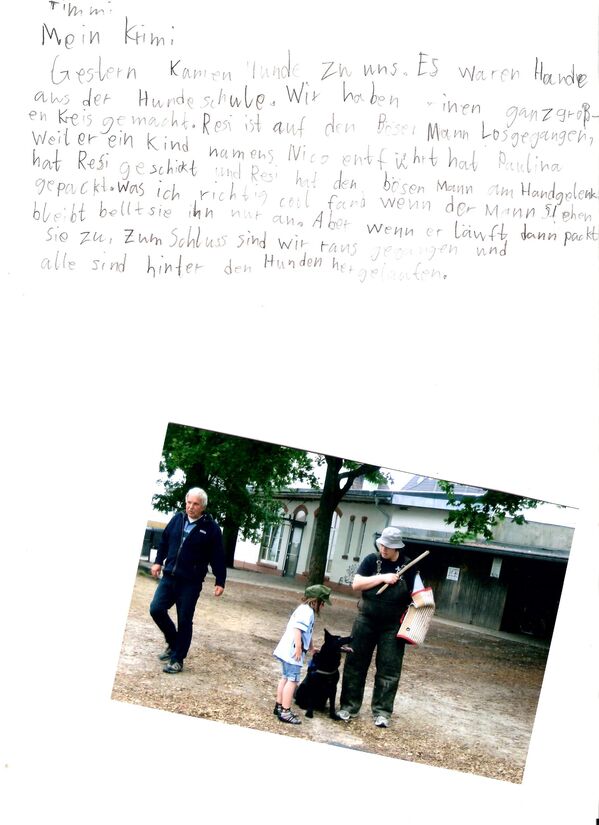 Timmi
Mein Krimi
Gestern kamen Hunde zu uns. Es waren Hunde
aus der Hundeschule. Wir haben einen ganzgroß-
en Kreis gemacht. Resi ist auf den Bösen Mann Losgegangen,
Weil er ein Kind namens Nico entführt hat Paulina
hat Resi geschikt und Resi hat den bösen Mann am Handgelenk
gepackt. Was ich richtig cool fand wenn der Mann stehen
bleibt bellt sie ihn nur an. Aber wenn er läuft, dann packt
Sie zu. Zum Schluss sind wir raus gegangen und
alle sind hinter den Hunden her gelaufen.